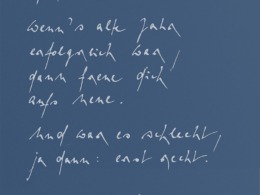 wenn's alte Jahr
erfolgreich war,
dann freue dich
aufs neue.
Und war es schlecht,
ja dann: erst recht.